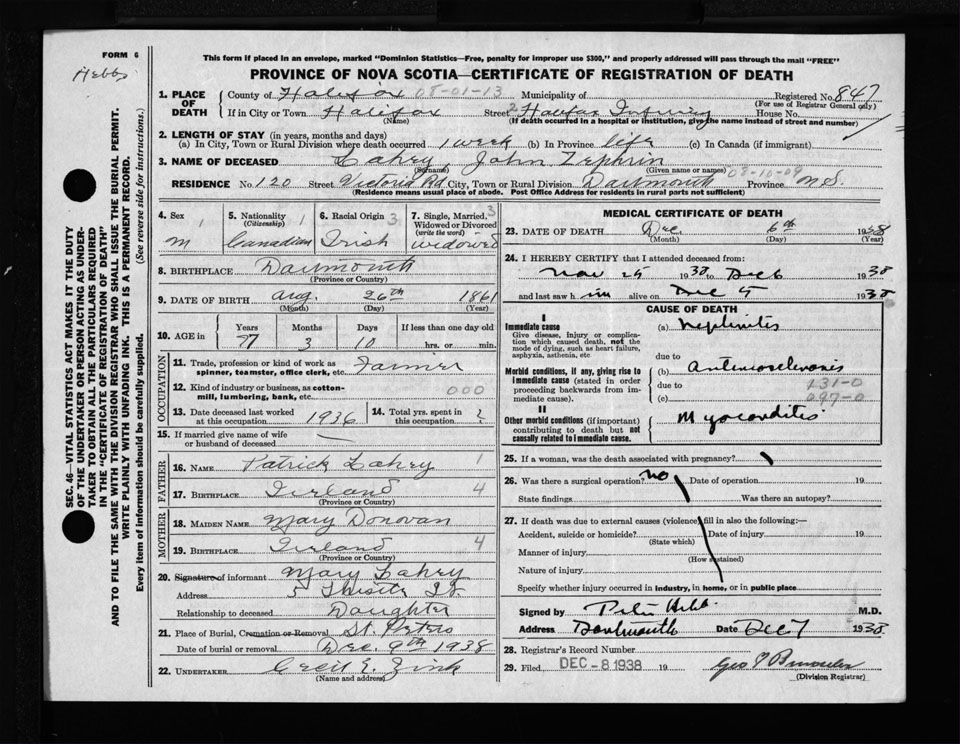 FORM 6
Hebbs
This form if placed in an envelope, marked "Dominion Statistics—Free, penalty for improper use $300," and properly addressed will pass through the mail "FREE"
PROVINCE OF NOVA SCOTIA—CERTIFICATE OF REGISTRATION OF DEATH
1. PLACE OF DEATH
County of Halifax 08-01-13 Municipality of Registered No. 847
(For use of Registrar General only)
If in City or Town Halifax Street 2 Halifax Infirmary House No.
(Name) (If death occurred in a hospital or institution, give the name instead of street and number)
2. LENGTH OF STAY (in years, months and days)
(a) In City, Town or Rural Division where death occurred 1 week (b) In Province life (c) In Canada (if immigrant)
3. NAME OF DECEASED Lahey, John Zephrin
(Surname) (Given name or names) 08-10-09
RESIDENCE No. 120 Street Victoria Rd City, Town or Rural Division Dartmouth Province N.S.
(Residence means usual place of abode. Post Office Address for residents in rural parts not sufficient)
4. Sex M 1
5. Nationality (Citizenship) 1 Canadian
6. Racial Origin 3 Irish
7. Single, Married, Widowed or Divorced (write the word) 3 widowed
8. BIRTHPLACE Dartmouth
(Province or Country)
9. DATE OF BIRTH Aug. 26th 1861
(Month) (Day) (Year)
10. AGE in Years 77 Months 3 Days 10 If less than one day old hrs. or min.
OCCUPATION
11. Trade, profession or kind of work as spinner, teamster, office clerk, etc. Farmer
12. Kind of industry or business, as cotton-mill, lumbering, bank, etc. 000
13. Date deceased last worked at this occupation 1936
14. Total yrs. spent in this occupation ?
15. If married give name of wife or husband of deceased —
FATHER
16. NAME Patrick Lahey 1
17. BIRTHPLACE Ireland 4
(Province or Country)
MOTHER
18. MAIDEN NAME Mary Donovan
19. BIRTHPLACE Ireland 4
(Province or Country)
20. Signature of informant Mary Lahey
Address 5 Thistle St
Relationship to deceased Daughter
21. Place of Burial, Cremation or Removal St. Peters
Date of burial or removal Dec. 9th 1938
22. UNDERTAKER Cecil E. Zink
(Name and address)
MEDICAL CERTIFICATE OF DEATH
23. DATE OF DEATH Dec 6th 1938
(Month) (Day) (Year)
24. I HEREBY CERTIFY that I attended deceased from:
Nov 25 1938 to Dec 6 1938
and last saw him alive on Dec 5 1938
CAUSE OF DEATH
I
Immediate cause
Give disease, injury or complication which caused death, not the mode of dying, such as heart failure, asphyxia, asthenia, etc
(a) Nephritis
due to
Morbid conditions, if any, giving rise to immediate cause (stated in order proceeding backwards from immediate cause).
(b) Arteriosclerosis
due to 131-0
(c) 097-0
II
Other morbid conditions (if important) contributing to death but not causally related to immediate cause.
Myocarditis
25. If a woman, was the death associated with pregnancy?
26. Was there a surgical operation? no Date of operation 19
State findings Was there an autopsy?
27. If death was due to external causes (violence) fill in also the following:—
Accident, suicide or homicide? Date of injury 19
(State which)
Manner of injury
(How sustained)
Nature of injury
Specify whether injury occurred in industry, in home, or in public place
Signed by Peter Hebb M.D.
Address Dartmouth Date Dec 7 1938
28. Registrar's Record Number
29. Filed DEC -8 1938 19 Geo
(Division Registrar)
SEC. 46—VITAL STATISTICS ACT MAKES IT THE DUTY
OF THE UNDERTAKER OR PERSON ACTING AS UNDER-
TAKER TO OBTAIN ALL THE PARTICULARS REQUIRED
IN THE "CERTIFICATE OF REGISTRATION OF DEATH"
AND TO FILE THE SAME WITH THE DIVISION REGISTRAR WHO SHALL ISSUE THE BURIAL PERMIT.
WRITE PLAINLY WITH UNFADING INK. THIS IS A PERMANENT RECORD.
Every item of information should be carefully supplied. (See reverse side for instructions.)